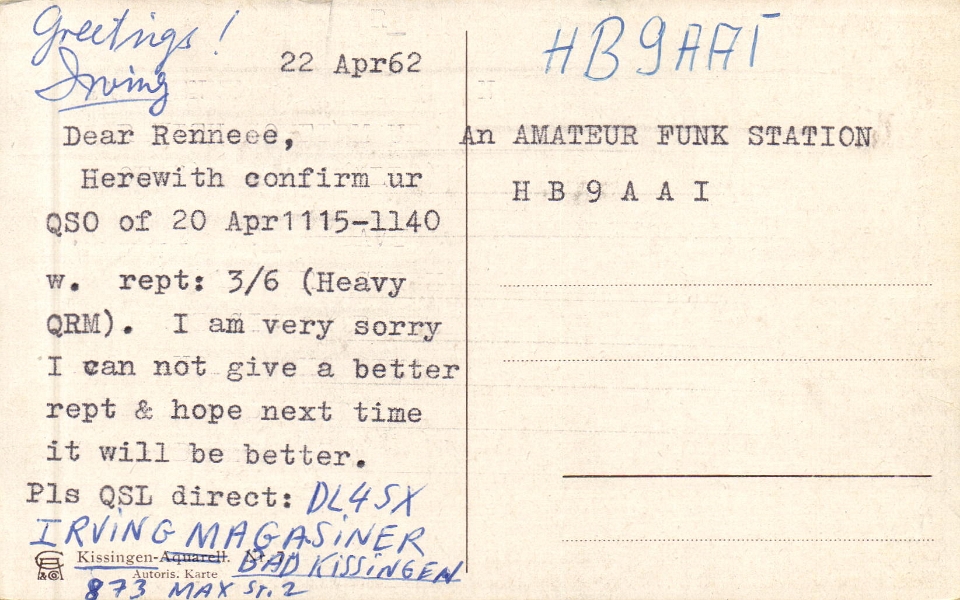 Greetings!
Irving
22 Apr62
Dear Renneee,
Herewith confirm ur
QSO of 20 Apr1115-1140
w. rept: 3/6 (Heavy
QRM). I am very sorry
I can not give a better
rept & hope next time
it will be better.
Pls QSL direct: DL4SX
IRVING MAGASINER
Kissingen-Aquarell.
BAD KISSINGEN
Autoris. Karte
873 MAX Str. 2
HB9AAI
An AMATEUR FUNK STATION
H B 9 A A I